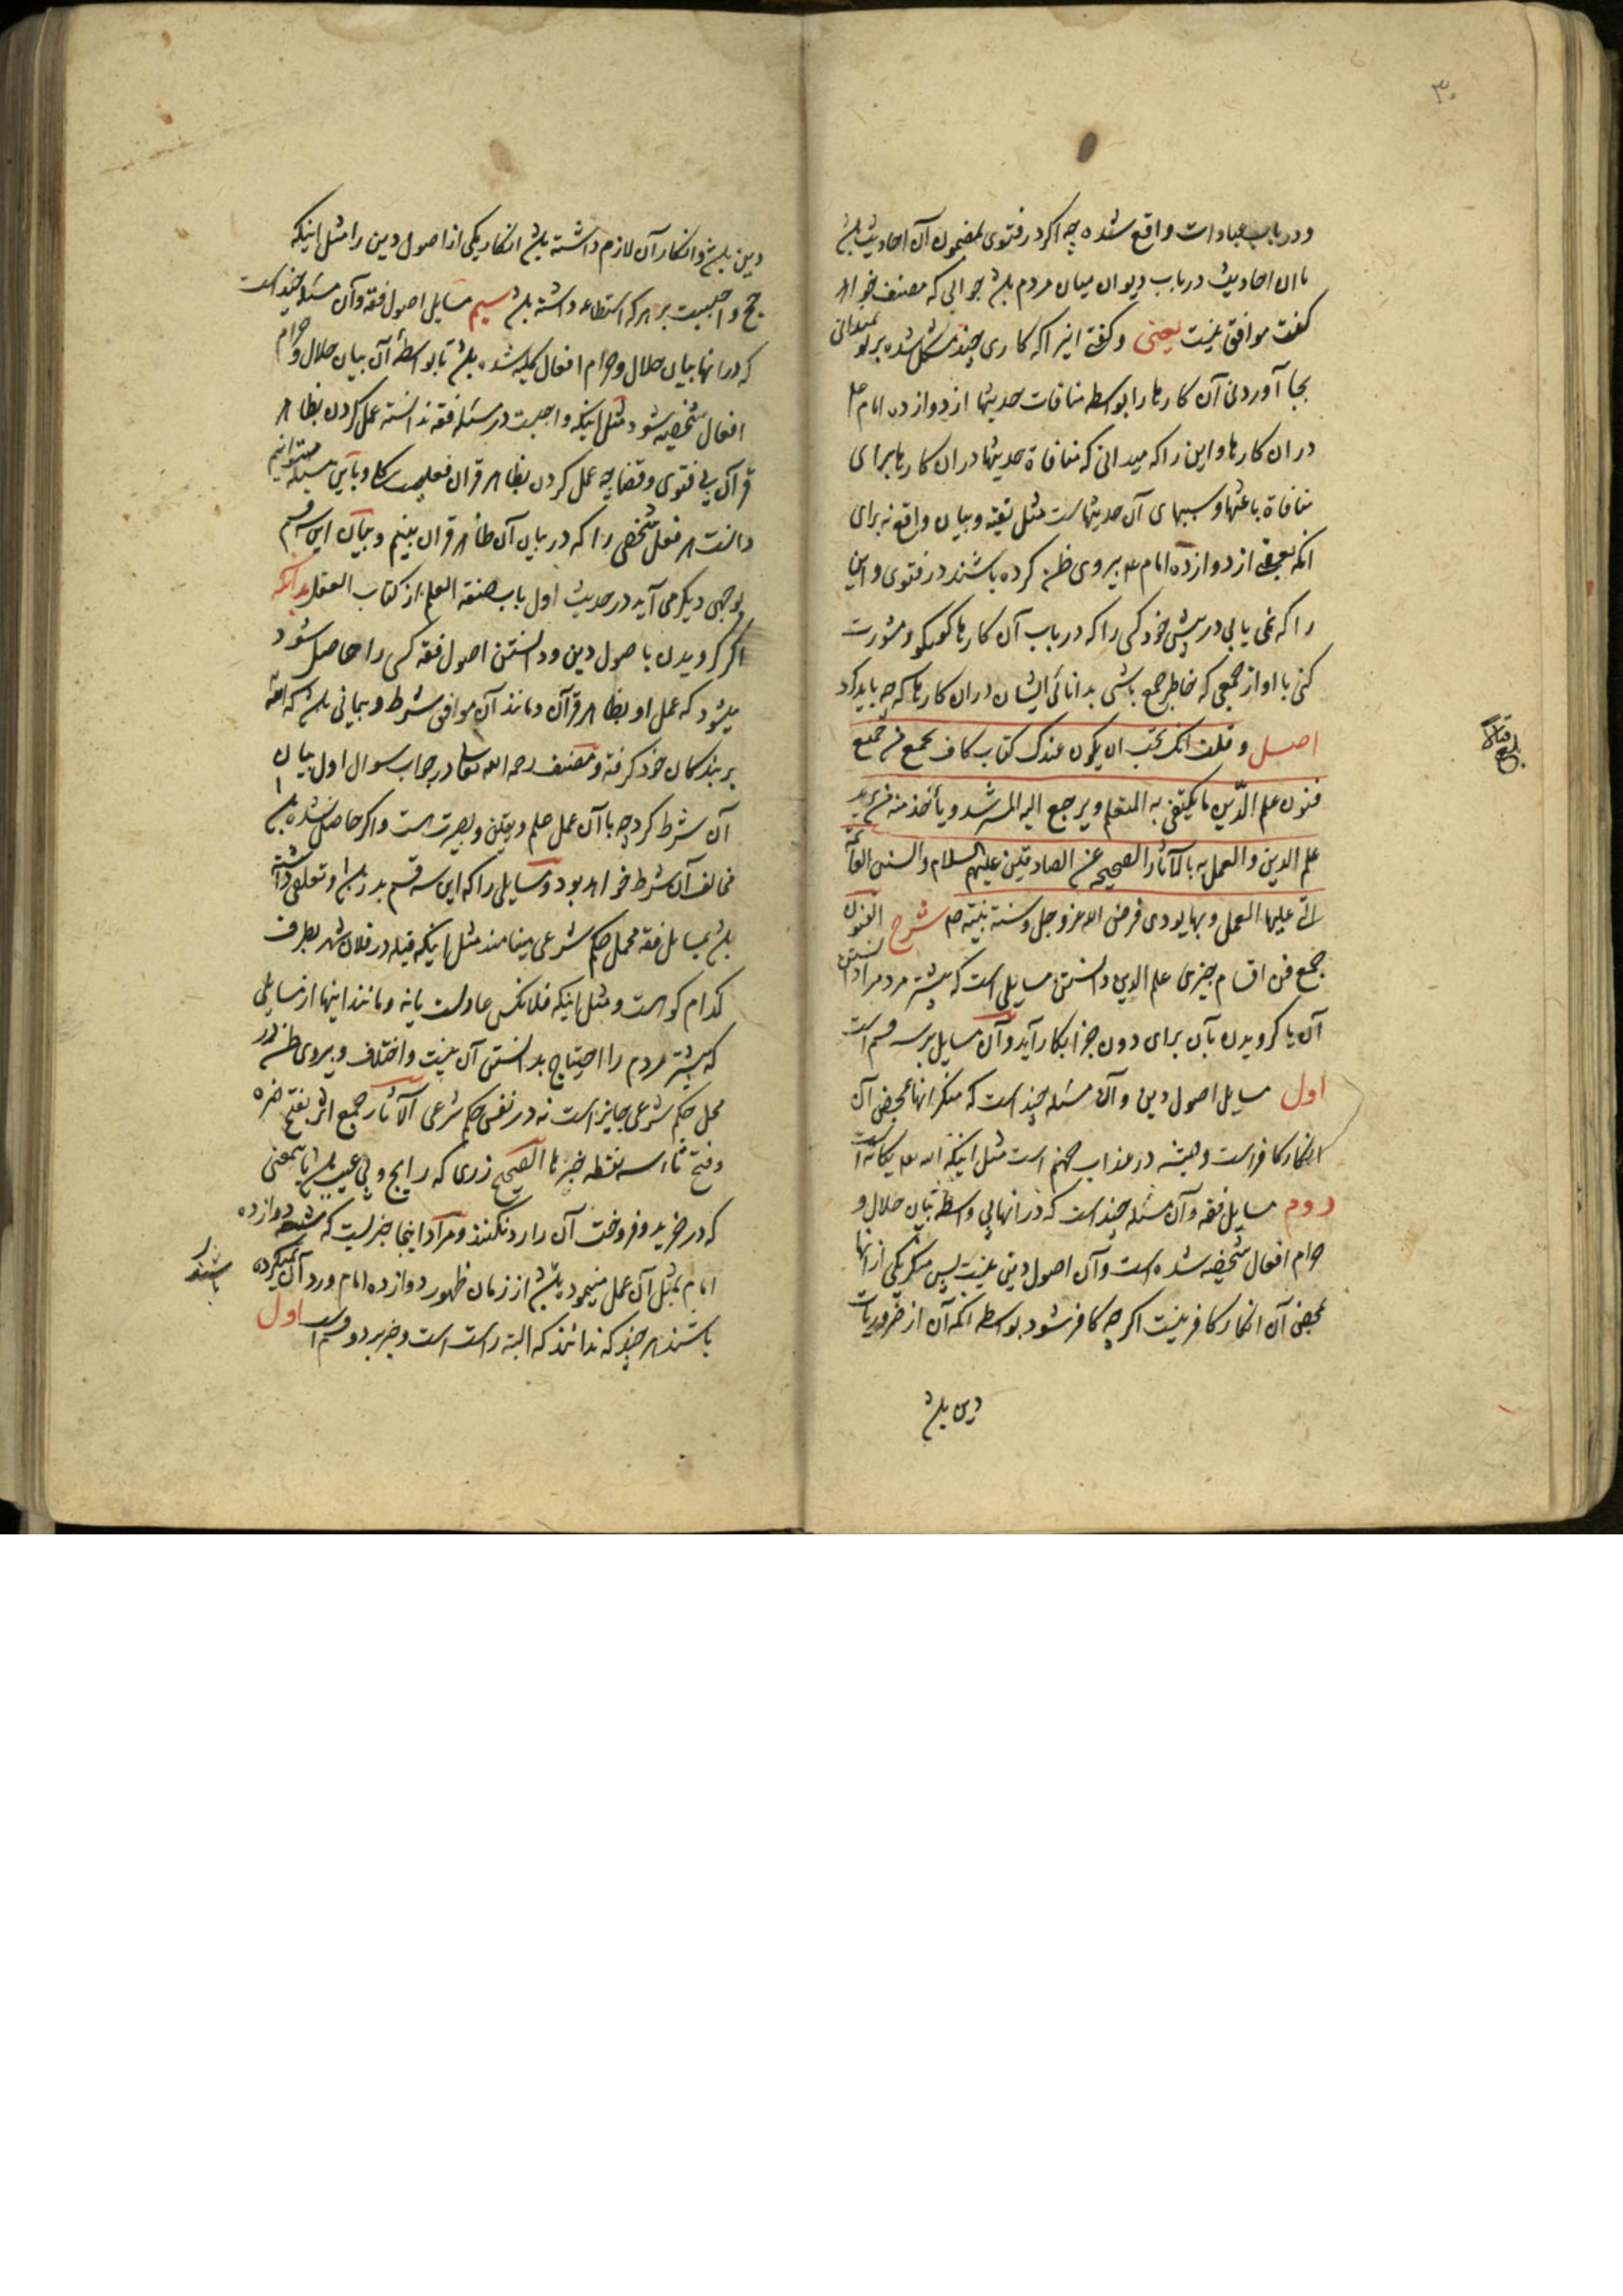 ۳۰
و در باب عبادات واقع شده چه اکر در فتوی بمضمون آن احادیث باشد
با ان احادیث در باب دیوان میان مردم باشد جوابی که مصنف خواهد
کفت موافق نیست یعنی و کفتی اینرا که کاری چند مشکل شده بر تو نمیدانی
بجا آوردن آن کارها را بواسطه منافات حدیثها از دوازده امام ع
در ان کارها و این را که میدانی که منافاة حدیثها در ان کارها برای
منافاة باعثها و سببهای آن حدیثهاست مثل تقیه و بیان واقع نه برای
انکه بعضی از دوازده امام ع پیروی ظن کرده باشند در فتوی و این
را که نمی یابی در پیش خود کسی را که در باب آن کارها کومکو و مشورت
کنی با او از جمعی که خاطر جمع باشی بدانائی ایشان در ان کارها که چه باید کرد
اصل و قلت انک تحب ان یکون عندک کتاب کاف یجمع من جمیع
فنون علم الدّین ما یکتفی به المتعلم و یرجع الیه المسترشد و یأخذ منه من یرید
علم الدین و العمل به بالآثار الصحیحه عن الصادقین علیهم السلام و السنن القائمة
التی علیها العمل و بها یودی فرض الله عز و جل و سنة نبیّه ص شرح الفنون
جمع فن اقسام چیزی علم الدین دانستن مسایلی است که بیشتر مردم را دانستن
آن یا کرویدن بآن برای دون جزا بکار آید و آن مسایل بر سه قسم است
اول مسایل اصول دین و آن مسئله چند است که منکر انها بمحض آن
انکار کافر است و همیشه در عذاب جهنم است مثل اینکه الله تعالی یکانه است
دوم مسایل فقه و آن مسئله چند است که در انها بی واسطه بیان حلال و
حرام افعال شخصیه شده است و آن اصول دین نیست پس منکر یکی از انها
بمحض آن انکار کافر نیست اکر چه کافر شود بواسطه انکه آن از ضروریات
دین باشد
دین باشد و انکار آن لازم داشته باشد انکار یکی از اصول دین را مثل اینکه
حج واجبیست بر هر که استطاعه داشته باشد سیم مسایل اصول فقه و آن مسئله چند است
که در انها بیان حلال و حرام افعال کلیه شده باشد تا بواسطهٔ آن بیان حلال و حرام
افعال شخصیه شود مثل اینکه واجبست در مسئله فقه ندانسته عمل کردن بظاهر
قرآن بی فتوی و قضا چه عمل کردن بظاهر قران فعلیست کلی و باین مسئله میتوانیم
دانست هر فعل شخصی را که در بیان آن ظاهر قران بینیم و بیان این سه قسم
بوجهی دیکر می آید در حدیث اول باب صفة العلم از کتاب العقل بدانکه
اکر کرویدن باصول دین و دانستن اصول فقه کسی را حاصل شود
میشود که عمل او بظاهر قرآن و مانند آن موافق شرط و پیمانی باشد که الله
بر بندکان خود کرفته و مصنف رحمه الله تعالی در جواب سوال اول بیان
آن شرط کرد چه با آن عمل علم و یقین و بصیرت است و اکر حاصل نشده باشد
مخالف آن شرط خواهد بود و مسایلی را که این سه قسم بدر باشد و تعلقی داشته
باشد بمسایل فقه محمل حکم شرعی مینامند مثل اینکه قبله در فلان شهر بطرف
کدام کو است و مثل اینکه فلانکس عادلست یا نه و مانند اینها از مسایلی
که بیشتر مردم را احتیاج بدانستن آن نیست و اختلاف و پیروی ظن در
محل حکم شرعی جایز است نه در نفس حکم شرعی الآثار جمع اثر بفتح همزه
و فتح ثاء سه نقطه خبرها الصحیح زری که رایج و بی عیب باشد باینمعنی
که در خرید و فروخت آن را رد نکنند و مراد اینجا خبریست که شیعه دوازده
امام بمثل آن عمل مینموده باشند از زمان ظهور دوازده امام و رد آن نمیکرده
باشند هر چند که ندانند که البته راست است و خبر بر دو قسم است اول